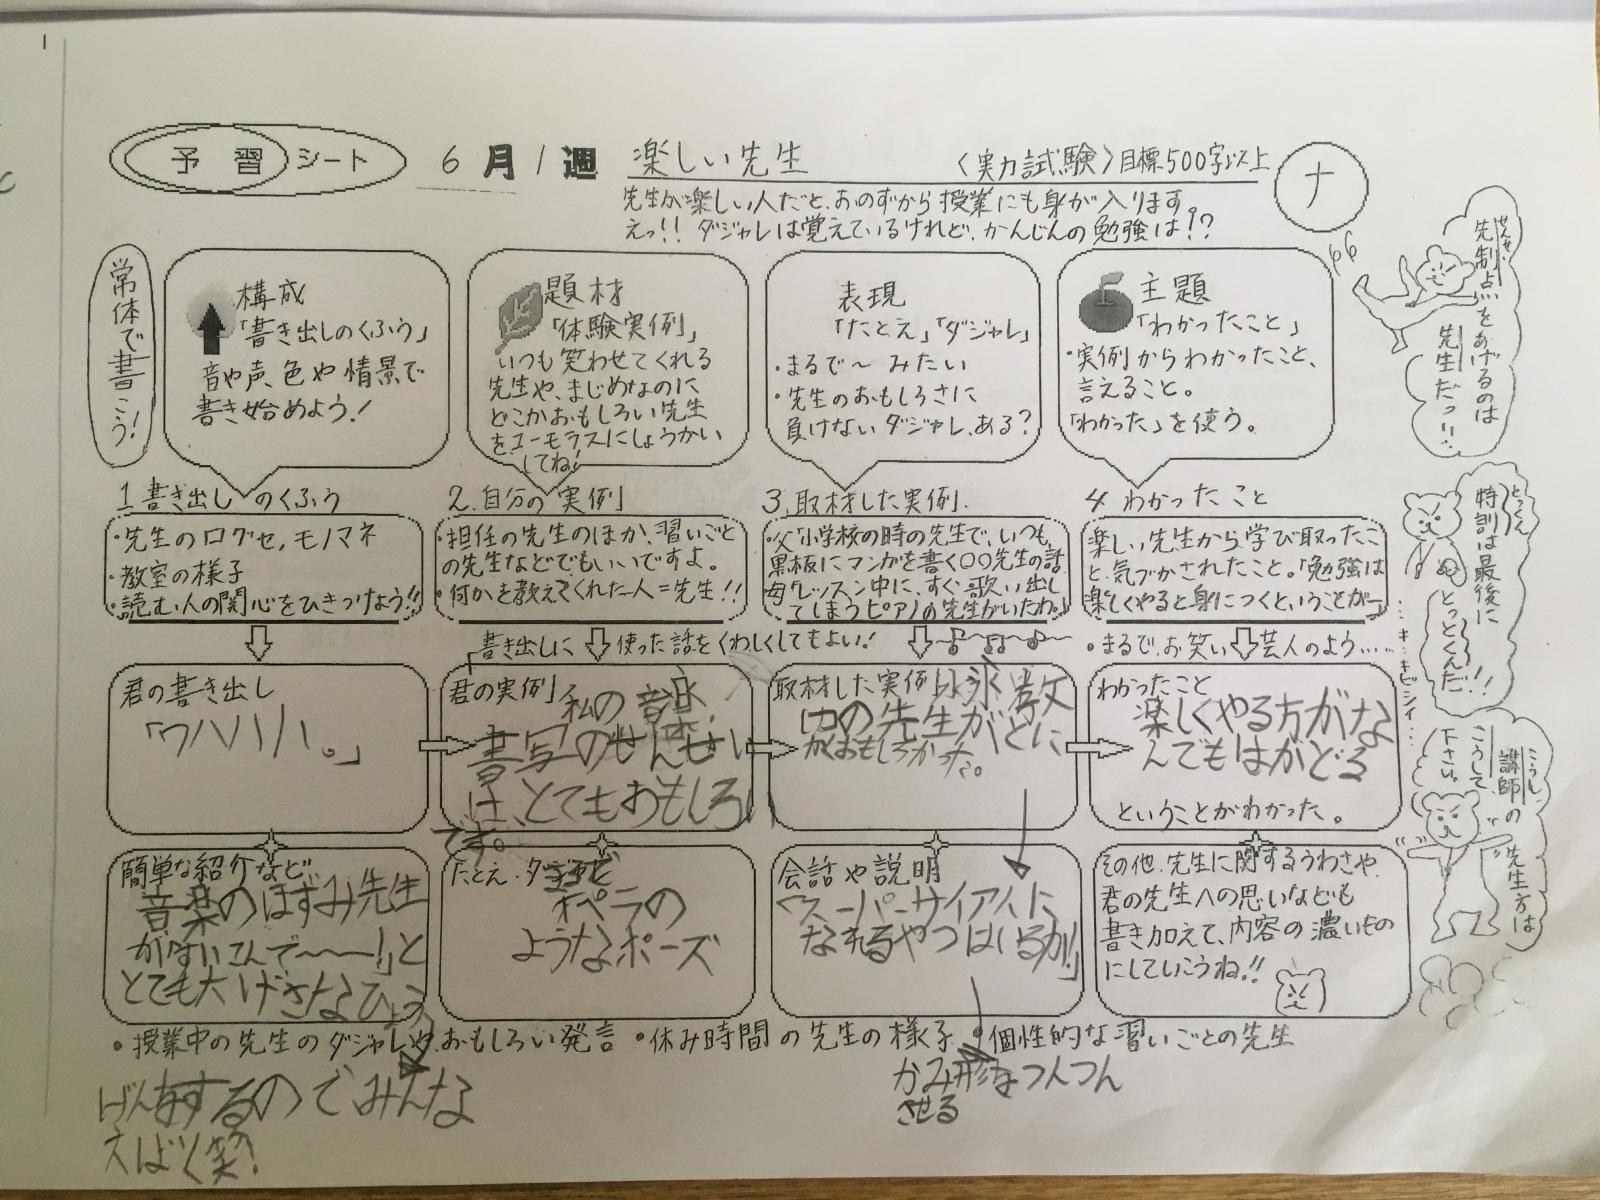 予習シート
6月1週 楽しい先生 〈実力試験〉目標500字以上 ナ
先生が楽しい人だと、おのずから授業にも身が入ります。
えっ!! ダジャレは覚えているけれど、かんじんの勉強は!?
66
常体で書こう!
構成
「書き出しのくふう」
音や声、色や情景で
書き始めよう!
題材
「体験実例」
いつも笑わせてくれる
先生や、まじめなのに
どこかおもしろい先生
をユーモラスにしょうかい
してね!
表現
「たとえ」「ダジャレ」
・まるで〜みたい
・先生のおもしろさに
負けないダジャレ、ある?
主題
「わかったこと」
・実例からわかったこと、
言えること。
「わかった」を使う。
せんせい
先制点をあげるのは
先生だっ!!
1.書き出しのくふう
・先生の口グセ,モノマネ
・教室の様子
・読む人の関心をひきつけよう!!
2.自分の実例
・担任の先生のほか、習いごと
の先生などでもいいですよ。
・何かを教えてくれた人=先生!!
3.取材した実例.
父「小学校の時の先生で、いつも、
黒板にマンガを書く〇〇先生の話
母「レッスン中に、すぐ歌い出し
てしまうピアノの先生がいたわ。」
4 わかったこと
楽しい先生から学び取ったこ
と、気づかされたこと。「勉強は
楽しくやると身につくということが―
とっくん
特訓は最後に
とっとくんだ!!
…キ…キビシイ…
書き出しに使った話をくわしくしてもよい!
・まるで、お笑い芸人のよう……
君の書き出し
「ワハハハ。」
君の実例
私の音楽、
書写のせんせい
は、とてもおもしろい
です。
取材した実例
ゆの先生がとに
がおもしろかった。
わかったこと
楽しくやる方がな
んでもはかどる
ということがわかった。
こうし
講師の先生方は
こうして
下さい。
簡単な紹介など
音楽のほずみ先生
とても大げさなひょう
げんをするのでみんな
えばく笑!
たとえ・ダジャレ
オペラの
ようなポーズ
会話や説明
「スーパーサイア人に
なれるやつはいるか!」
かみ形をつんつん
させる
その他、先生に関するうわさや、
君の先生への思いなども
書き加えて、内容の濃いもの
にしていこうね!!
・授業中の先生のダジャレや、おもしろい発言 ・休み時間の先生の様子 ・個性的な習いごとの先生